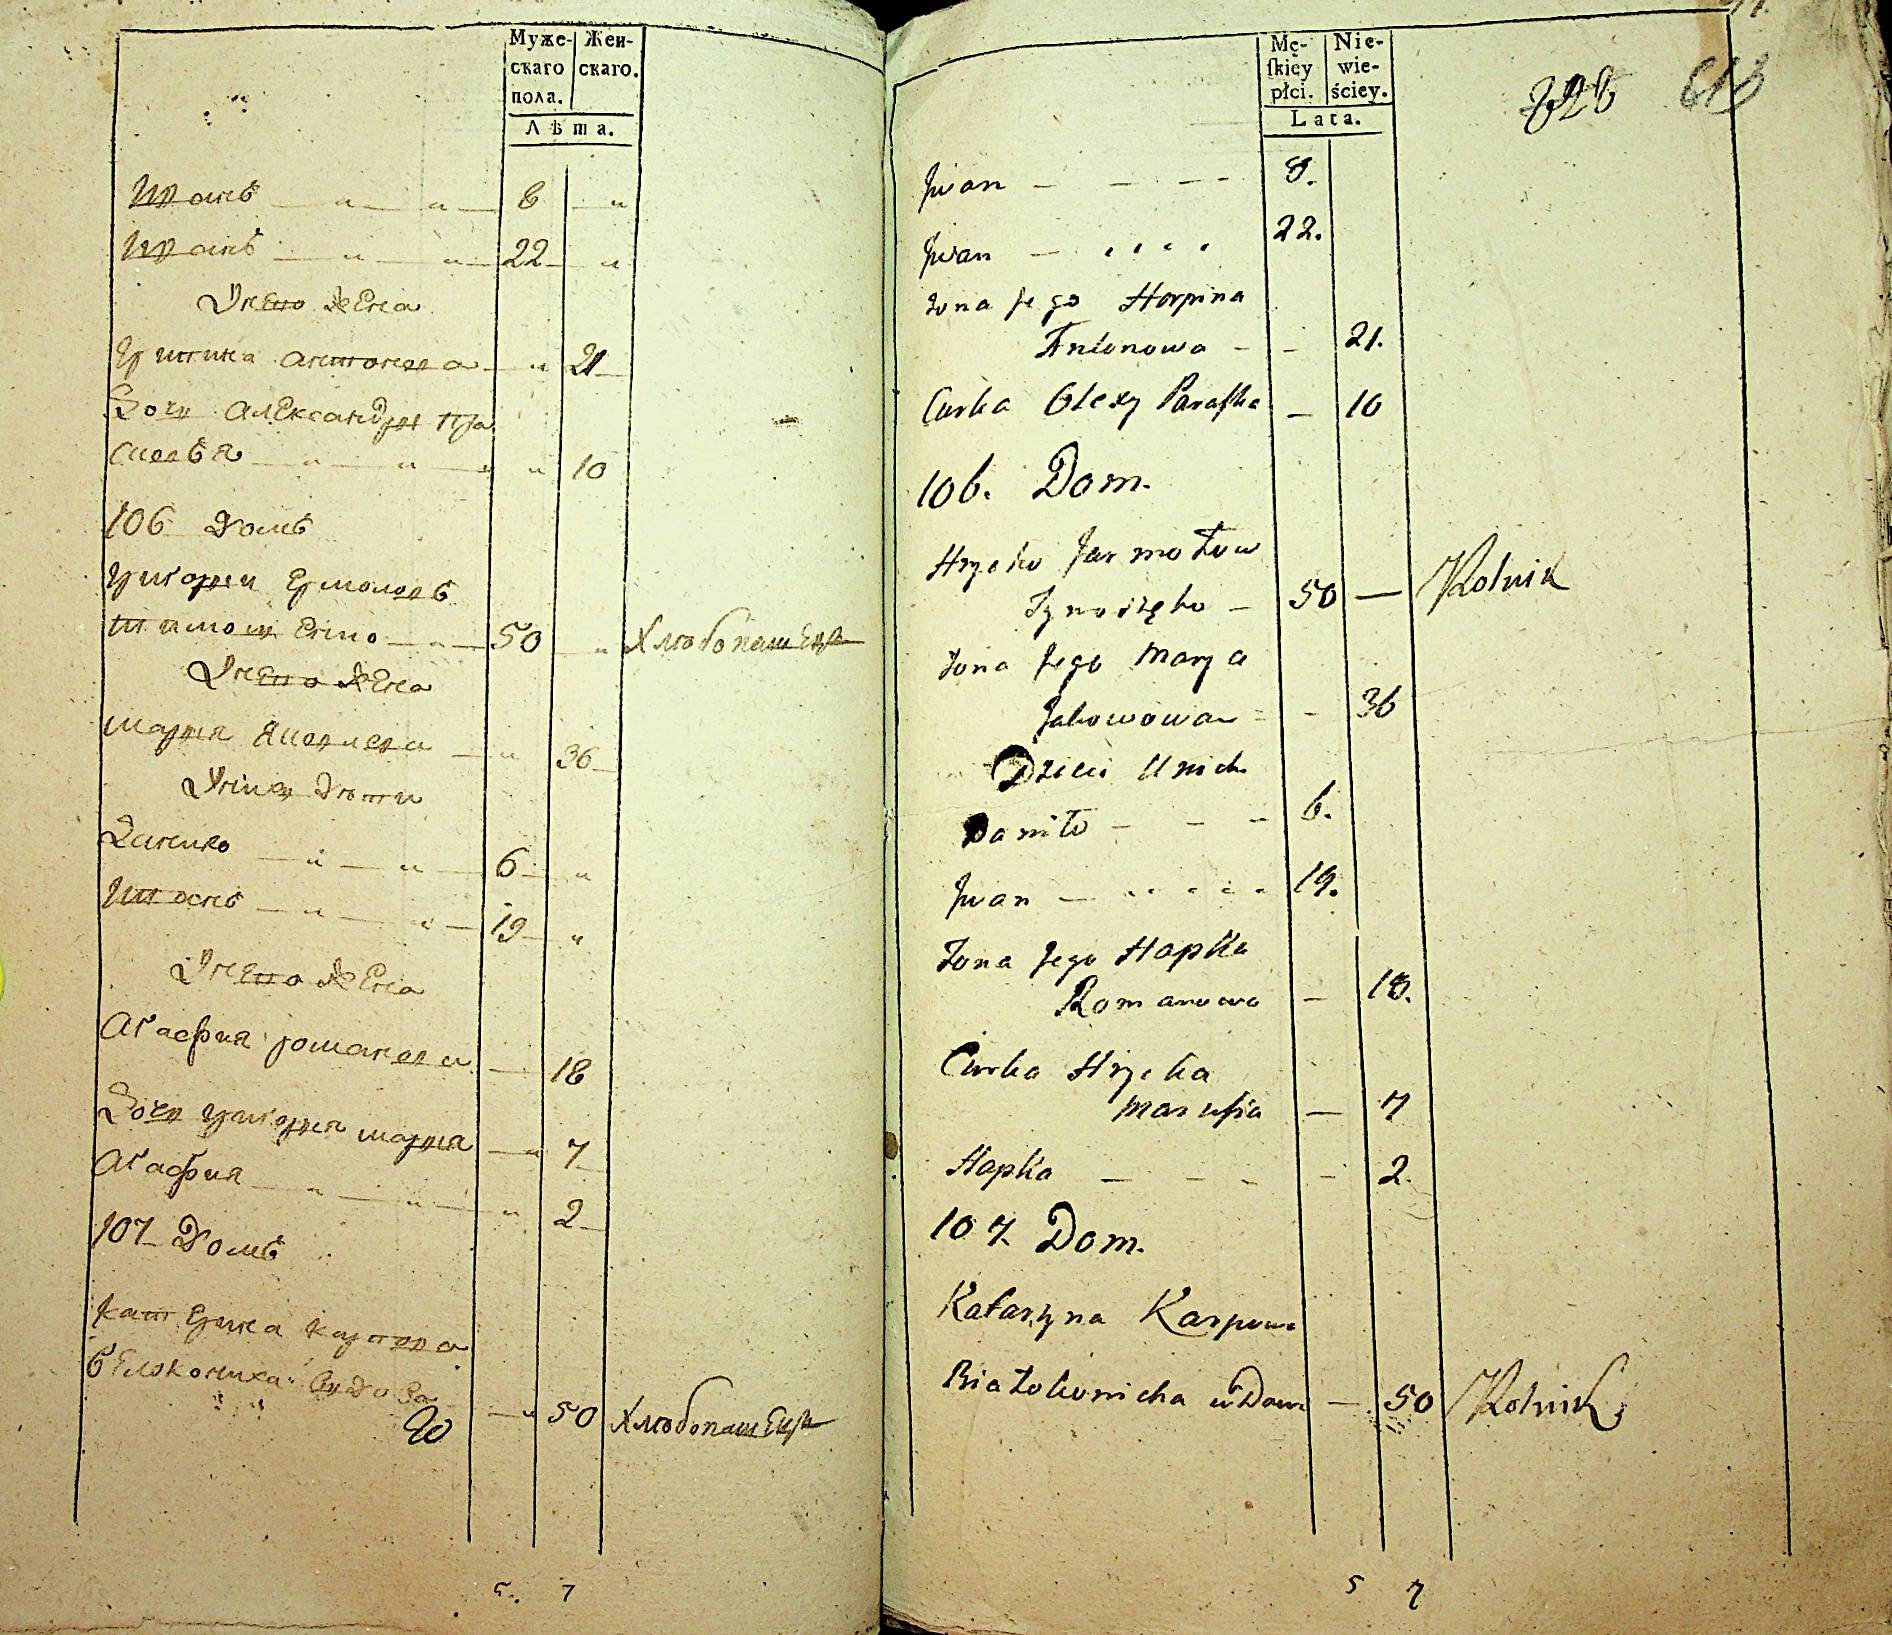 Муже-
скаго
пола.
Жен-
скаго.
Лѣта.
Иванъ 8 "
Иванъ 22 "
У него жена
антонова " 21
Дочь Александры Пра
сковья " 10
106 Домъ
Григорей Ермоловъ
Тимошенко 50 " Хлѣбопашецъ
У него жена
Мария Яковлева " 36
У них дѣти
Данило 6 "
Иванъ 19 "
У него жена
Агафия романова 18
Дочь григория мария " 7
Агафия " 2
107 Домъ
Катерина карпова
белокониха вдова
20 " 50 Хлѣбопашецъ
5. 7
Mę-
ſkiey
płci.
Nie-
wie-
ściey.
Lata.
613
Jwan 8.
Jwan 22.
Żona Jego Horpina
Antonowa - - 21.
Curka Olexy Paraſka - 10
106. Dom.
Hryćko Jarmołow
Tymoszęko - 50 — Rolnik
Żona Jego Marya
Jakowowa - 36
Dzieci U nich
Daniło - - - 6.
Jwan - 19.
Żona Jego Hapka
Romanowa - 18.
Curka Hryćka
Marusia — 7
Hapka - - - - 2.
107. Dom.
Katarzyna Karpowa
Białokonicha wDowa — 50 Rolnik
5 7